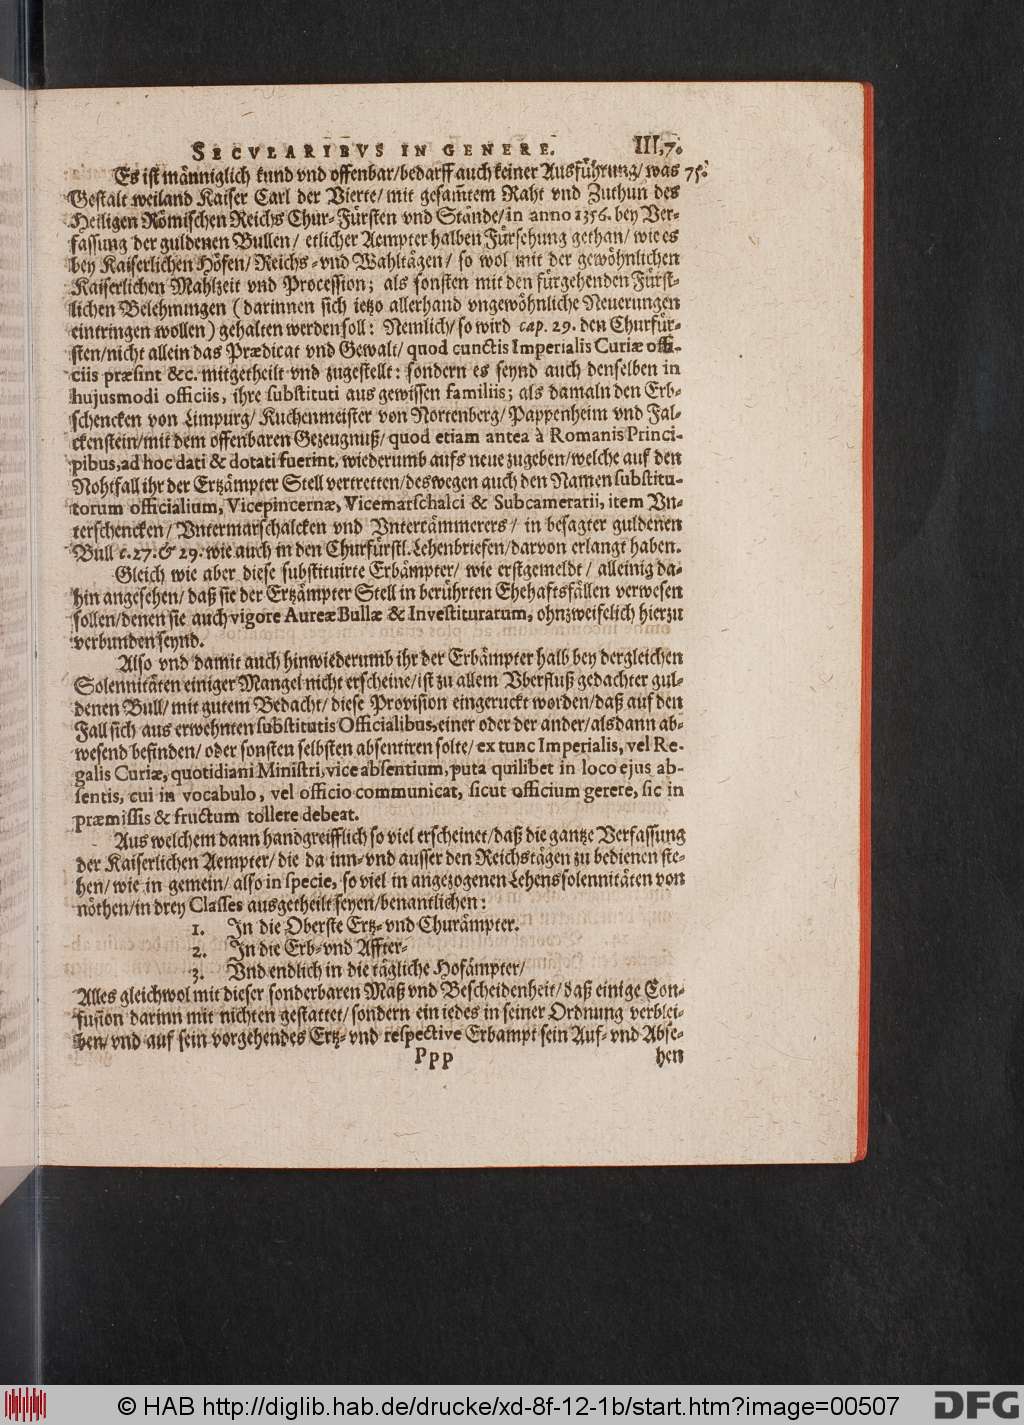 SECVLARIBVS IN GENERE. III,7.
Es ist männiglich kund vnd offenbar/bedarff auch keiner Ausführung/ was 75.
Gestalt weiland Kaiser Carl der Vierte/ mit gesam̃tem Raht vnd Zuthun des
Heiligen Römischen Reichs Chur-Fürsten vnd Stände/in anno 1356. bey Ver-
fassung der guldenen Bullen/ etlicher Aempter halben Fürsehung gethan/ wie es
bey Kaiserlichen Höfen/ Reichs-vnd Wahltägen/ so wol mit der gewöhnlichen
Kaiserlichen Mahlzeit vnd Procession; als sonsten mit den fürgehenden Fürst-
lichen Belehnungen (darinnen sich ietzo allerhand vngewöhnliche Neuerungen
eintringen wollen) gehalten werden soll: Nemlich/ so wird cap. 29. den Churfür-
sten/nicht allein das Prædicat vnd Gewalt/ quod cunctis Imperialis Curiæ offi-
ciis præsint &c. mitgetheilt vnd zugestellt: sondern es seynd auch denselben in
hujusmodi officiis, ihre substituti aus gewissen familiis; als damaln den Erb-
schencken von Limpurg/ Kuchenmeister von Nortenberg/ Pappenheim vnd Fal-
ckenstein/mit dem offenbaren Gezeugnuß/ quod etiam antea à Romanis Princi-
pibus, ad hoc dati & dotati fuerint, wiederumb aufs neue zugeben/welche auf den
Nohtfall ihr der Ertzämpter Stell vertretten/deswegen auch den Namen substitu-
torum officialium, Vicepincernæ, Vicemarschalci & Subcamerarii, item Vn-
terschencken/ Vntermarschalcken vnd Vnterkämmerers/ in besagter guldenen
Bull c. 27. & 29. wie auch in den Churfürstl. Lehenbriefen/darvon erlangt haben.
Gleich wie aber diese substituirte Erbämpter/ wie erstgemeldt/ alleinig da-
hin angesehen/ daß sie der Ertzämpter Stell in berührten Ehehaftsfällen verwesen
sollen/denen sie auch vigore Aureæ Bullæ & Investituratum, ohnzweifelich hierzu
verbunden seynd.
Also vnd damit auch hinwiederumb ihr der Erbämpter halb bey dergleichen
Solennitäten einiger Mangel nicht erscheine/ist zu allem Vberfluß gedachter gul-
denen Bull/ mit gutem Bedacht/ diese Provision eingeruckt worden/daß auf den
Fall sich aus erwehnten substitutis Officialibus, einer oder der ander/alsdann ab-
wesend befinden/ oder sonsten selbsten absentiren solte/ ex tunc Imperialis, vel Re-
galis Curiæ, quotidiani Ministri, vice absentium, puta quilibet in loco ejus ab-
sentis, cui in vocabulo, vel officio communicat, sicut officium gerere, sic in
præmissis & fructum tollere debeat.
Aus welchem dann handgreifflich so viel erscheinet/daß die gantze Verfassung
der Kaiserlichen Aempter/ die da inn-vnd ausser den Reichstägen zu bedienen ste-
hen/ wie in gemein/ also in specie, so viel in angezogenen Lehens solennitäten von
nöthen/in drey Classes ausgetheilt seyen/benantlichen:
1. In die Oberste Ertz-vnd Churämpter.
2. In die Erb-vnd Affter-
3. Vnd endlich in die tägliche Hofämpter/
Alles gleichwol mit dieser sonderbaren Maß vnd Bescheidenheit/ daß einige Con-
fusion darinn mit nichten gestattet/ sondern ein iedes in seiner Ordnung verblei-
ben/ vnd auf sein vorgehendes Ertz-vnd respective Erbampt sein Auf-vnd Abse-
Ppp hen
© HAB http://diglib.hab.de/drucke/xd-8f-12-1b/start.htm?image=00507 DFG